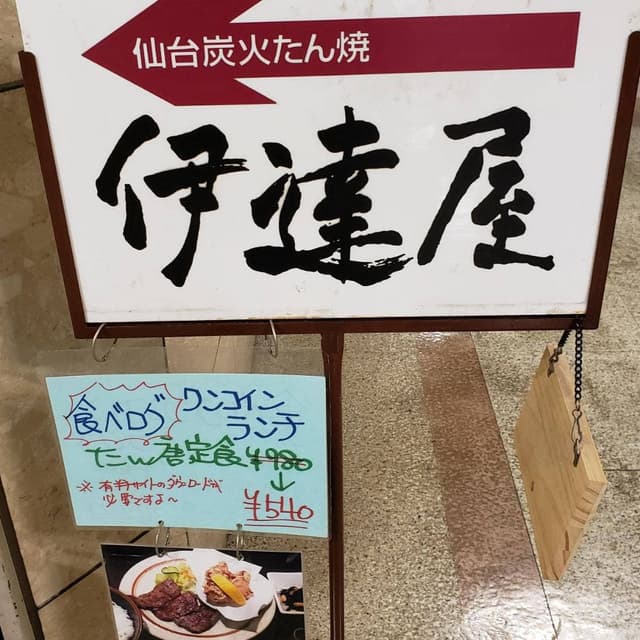 仙台炭火たん焼
伊達屋
食べログ
ワンコイン
ランチ
たん唐定食 ¥980
↓
¥540
※有料サイトのダウロードが
必要ですよ〜